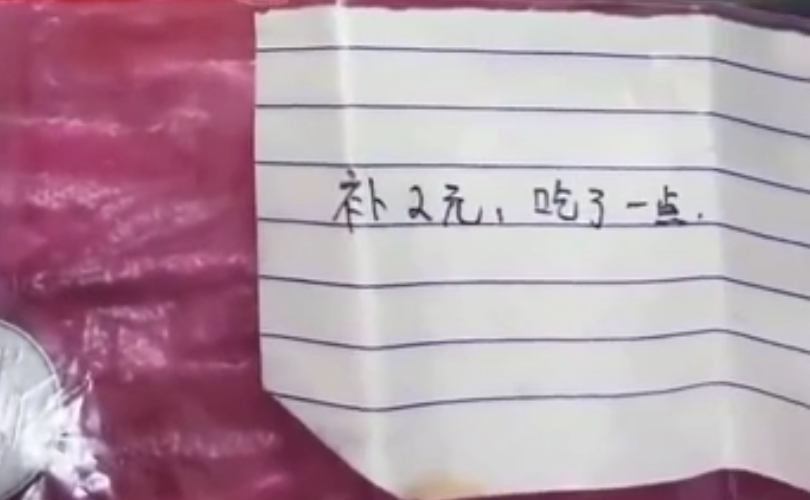 补2元,吃了一点.